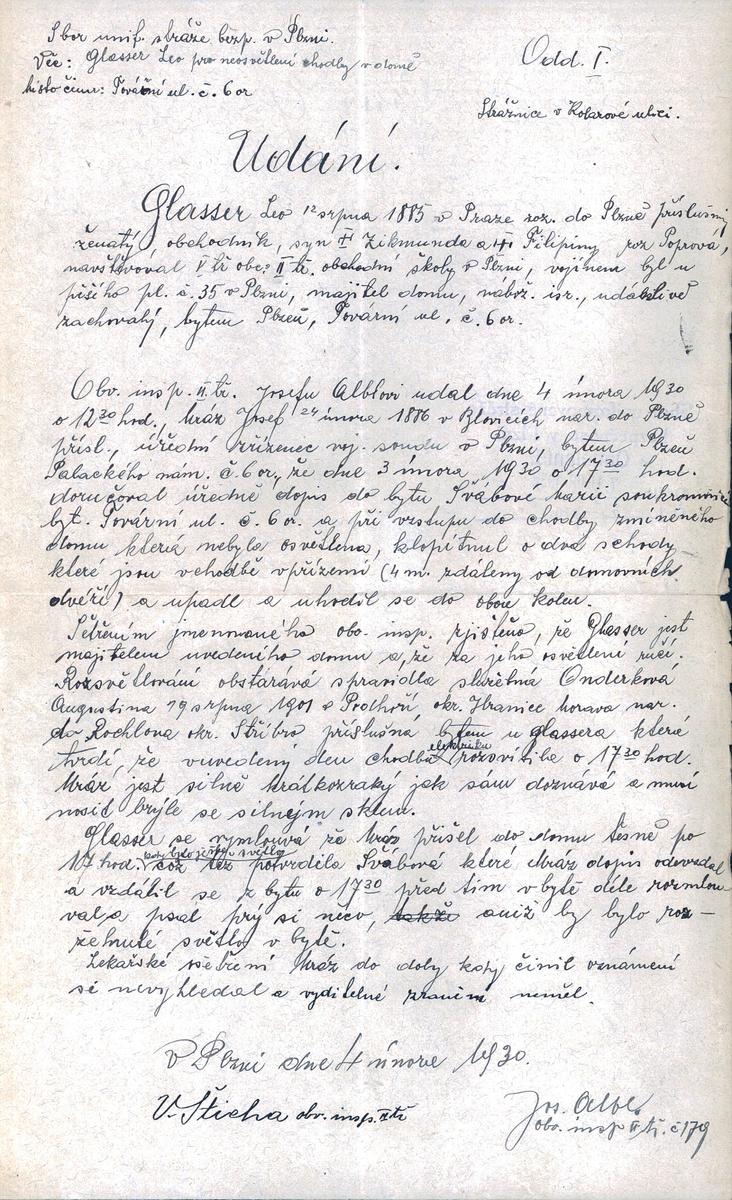 Sbor unif. stráže bezp. v Plzni.
Odd. I.
Věc: Glasser Leo pro neosvětlení chodby v domě
Místo činu: Tovární ul. č. 6 or
Strážnice v Kolarově ulici.
Udání.
Glasser Leo 12 srpna 1885 v Praze roz. do Plzně příslušný
ženatý, obchodník, syn Zikmunda a Filipiny roz Poprová,
navštěvoval V tř obec. II tř. obchodní školy v Plzni, vojínem byl u
pěšího pl. č. 35 v Plzni, majitel domu, nábož. isr., udánlivě
zachovalý, bytem Plzeň, Tovární ul. č. 6 or.
Obv. insp. II. tř. Josefu Alblovi udal dne 4 února 1930
o 12 30 hod., Mráz Josef 24 února 1886 v Blovicích nar. do Plzně
přísl., úřední zřízenec voj. soudu v Plzni, bytem Plzeň
Palackého nám. č. 6 or., že dne 3 února 1930 o 17 30 hod.
doručoval úředně dopis do bytu Švábové Marii soukromnici
byt. Tovární ul. č. 6 or. a při vstupu do chodby zmíněného
domu která nebyla osvětlena, klopítnul o dva schody
které jsou vchodbě vpřízemí (4 m. zdáleny od domovních
dveří) a upadl a uhodil se do obou kolen.
Šetřením jmenovaného obv. insp. zjištěno, že Glasser jest
majitelem uvedeného domu a, že za jeho osvětlení ručí.
Rozsvětlování obstarává spravidla služebná Onderková
Augustina 19 srpna 1901 v Podhoří okr. Hranice Morava nar.
do Rochlova okr. Stříbro příslušná bytem u glassera které
tvrdí, že vuvedený den chodbu elektriku rozsvítila o 17 30 hod.
Mráz jest silně krátkozraký jak sám doznává a musí
nosit brýle se silnejm sklem.
Glasser se vymlouvá že Mráz přišel do domu těsně po
17 hod. kdy bylo ještě světlo což též potvrdila Švábová které Mráz dopis odevzdal
a vzdálil se z bytu o 17 30 před tím v bytě déle rozmlou
val a psal prý si něco, takže aniž by bylo roz-
žehnuté světlo v bytě.
Lékařské ošetření Mráz do doby kdy činil oznámení
si nevyhledal a vyditelné zranění neměl.
V Plzni dne 4 února 1930.
V. Šticha obv. insp. II tř
Jos. Albl
obv. insp II tř. č 179